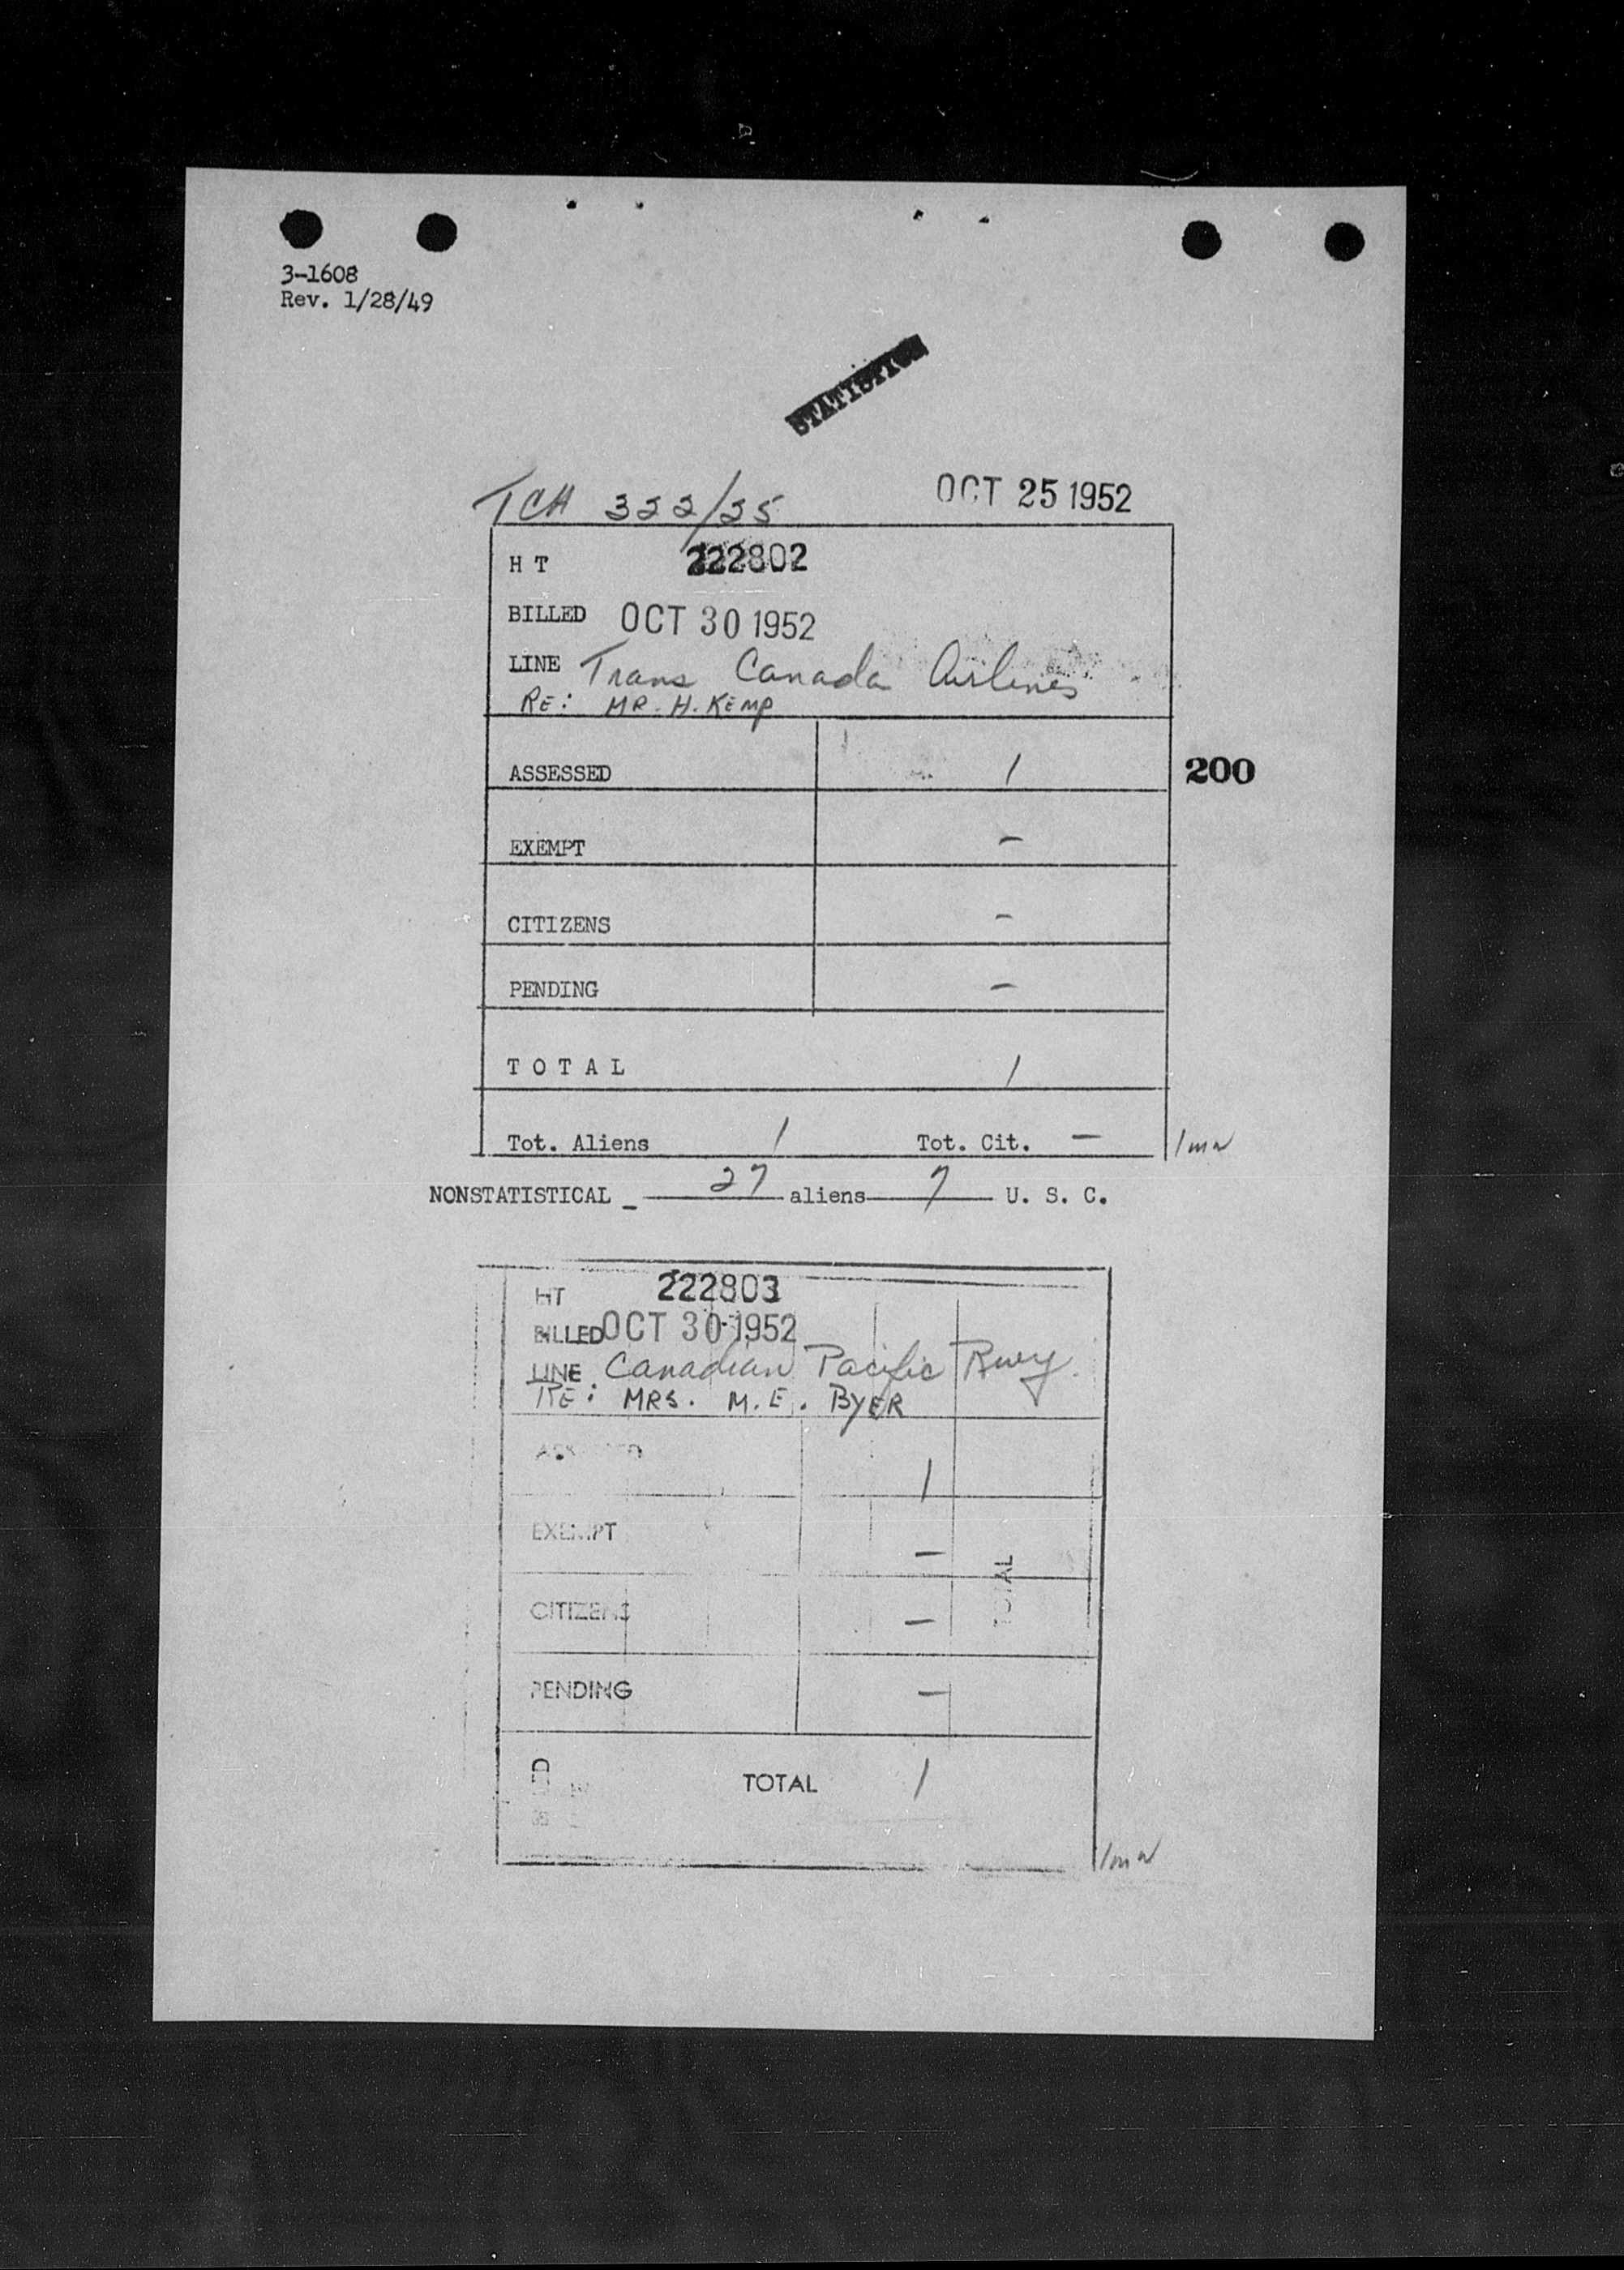 3-1608
Rev. 1/28/49
STATISTICS
TCA 322/25 OCT 25 1952
H T 222802
BILLED OCT 30 1952
LINE Trans Canada Airlines
RE: MR. H. KEMP
ASSESSED 1 200
EXEMPT –
CITIZENS –
PENDING –
T O T A L 1
Tot. Aliens 1 Tot. Cit. –
NONSTATISTICAL 27 aliens 7 U. S. C.
HT 222803
BILLED OCT 30 1952
LINE Canadian Pacific Rwy.
RE: MRS. M.E. BYER
1
EXEMPT –
CITIZENS –
TOTAL
PENDING –
TOTAL 1